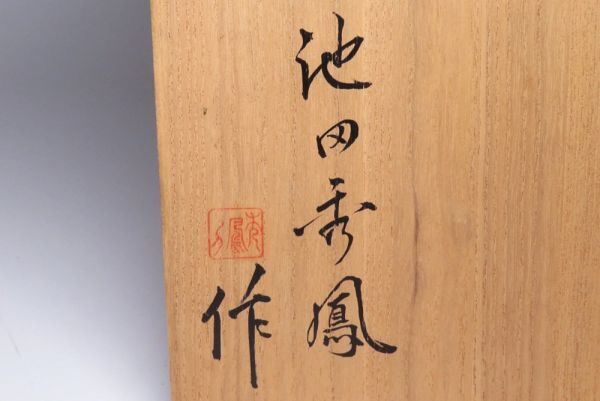 池田秀鳳
作